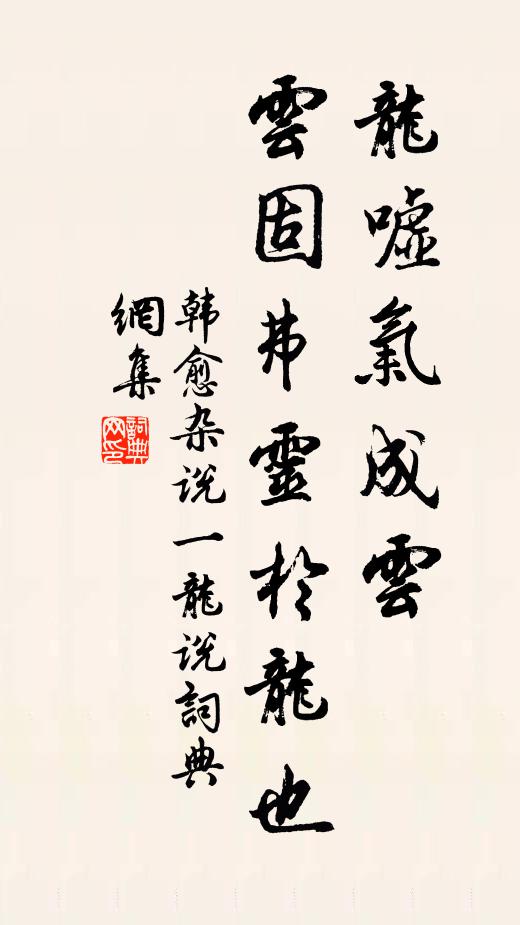 龍噓氣成雲
雲固弗靈於龍也
韩愈杂说一龍说詞典
網集
詞典
网印